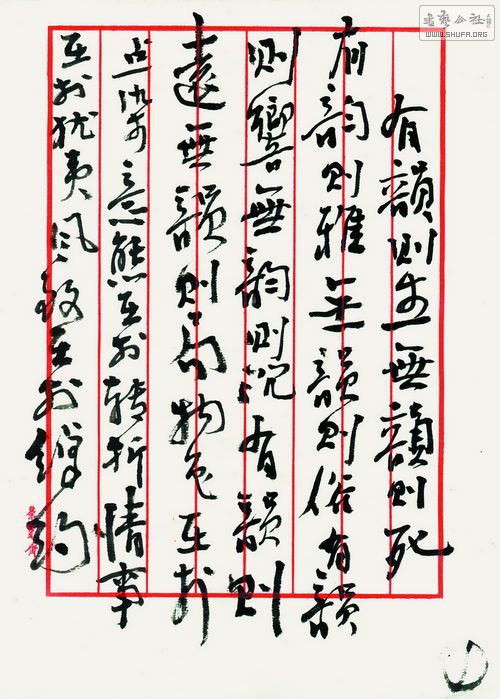 有韻則生無韻則死
有韵則雅無韻則俗有韻
則響無韵則沉有韻則
遠無韻則局物色在於
點染意態在於轉折情事
在於猶夷風致在於綽約
书艺公社
WWW.SHUFA.ORG